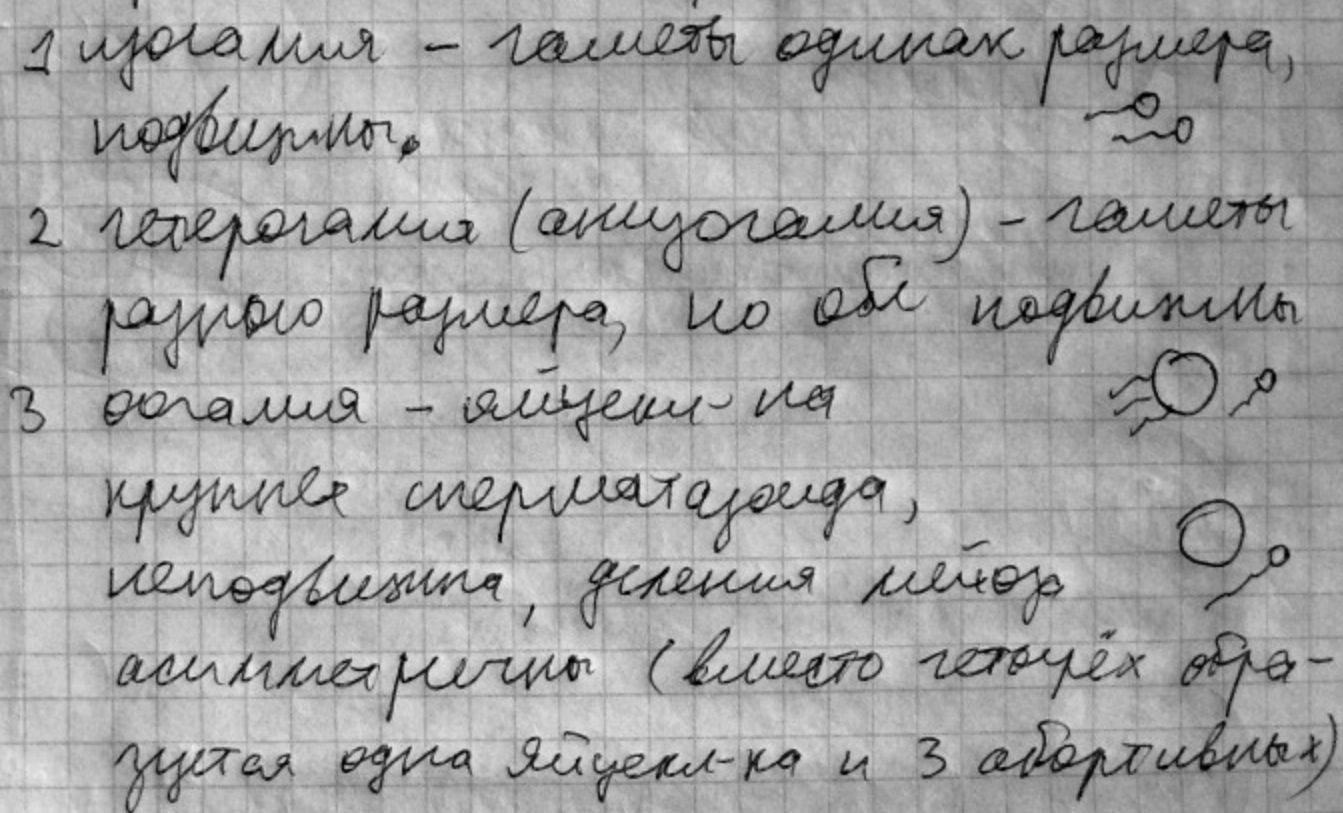 1 изогамия – гаметы одинак размера,
подвижны.
2 гетерогамия (анизогамия) – гаметы
разного размера, но обе подвижны
3 оогамия – яйцекл-ка
крупнее сперматазоида,
неподвижна, деления мейоза
асимметричны (вместо четырёх обра-
зуется одна яйцекл-ка и 3 абортивных)